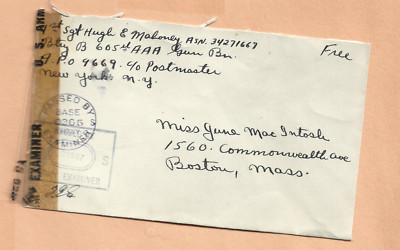 1st Sgt Hugh E Maloney ASN. 34271667
Btry B 605th AAA Gun Bn.
A.P.O 9669. c/o Postmaster
New York N.Y.
Free
Miss June Mac Intosh
1560. Commonwealth ave
Boston, Mass.
U.S. ARM
EXAMINER
PASSED BY
BASE
ARMY
EXAMINER
S
EXAMINER